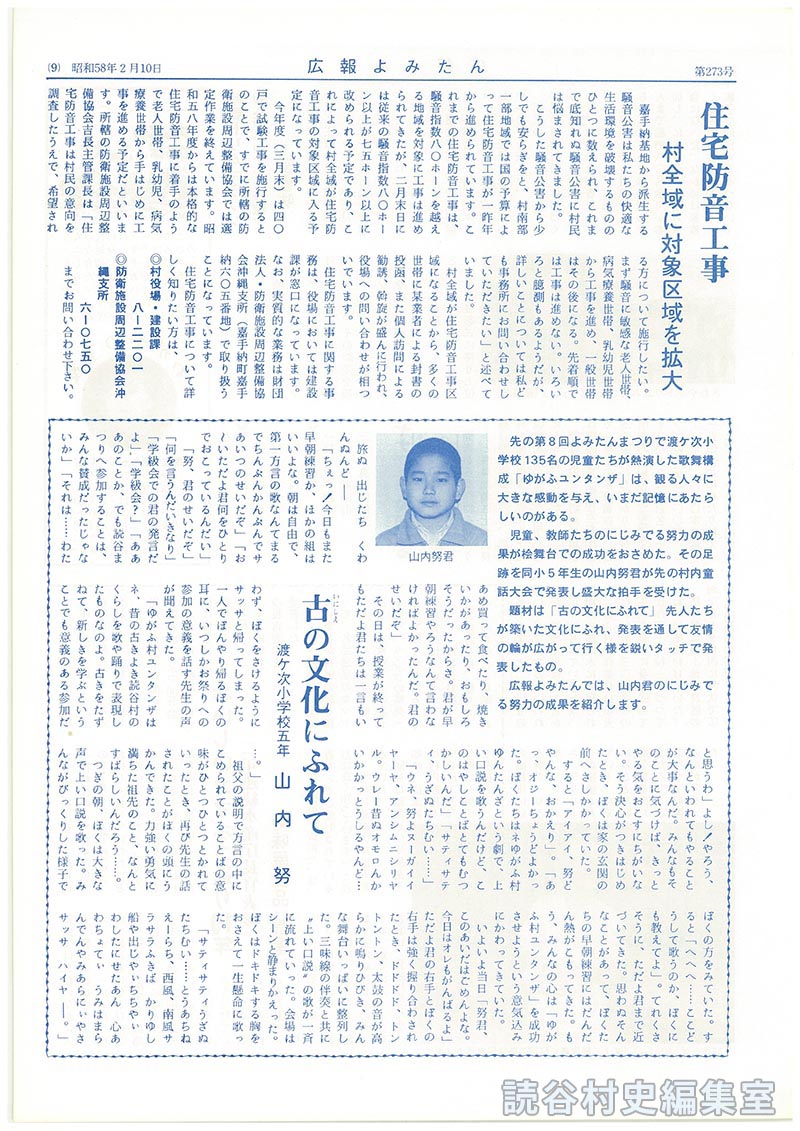 (9) 昭和58年2月10日
広報よみたん
第273号
住宅防音工事
村全域に対象区域を拡大
嘉手納基地から派生する
騒音公害は私たちの快適な
生活環境を破壊するものの
ひとつに数えられ、これま
で底知れぬ騒音公害に村民
は悩まされてきました。
こうした騒音公害から少
しでも安らぎをと、村南部
一部地域では国の予算によ
って住宅防音工事が一昨年
から進められています。こ
れまでの住宅防音工事は、
騒音指数八〇ホーンを越え
る地域を対象に工事は進め
られてきたが、二月末日に
は従来の騒音指数八〇ホー
ン以上が七五ホーン以上に
改められる予定であり、こ
れによって村全域が住宅防
音工事の対象区域に入る予
定になっています。
今年度（三月末）は四〇
戸で試験工事を施行すると
のことで、すでに防衛の防
衛施設周辺整備協会では選
定作業を終えています。昭
和五八年度からは本格的な
住宅防音工事に着手のよう
で老人世帯、乳幼児、病気
療養世帯から手はじめに工
事を進める予定だといいま
す。所轄の防衛施設周辺整
備協会吉長主管課長は「住
宅防音工事は村民の意向を
調査したうえで、希望され
る方について施行したい。
まず騒音に敏感な老人世帯、
病気療養世帯、乳幼児世帯
から工事を進め、一般世帯
はその後になる。先着順で
は工事は進めない。いろい
ろと臆測もあるようだが、
詳しいことについては私ど
も事務所にお問い合わせし
ていただきたい」と述べて
いました。
村全域が住宅防音工事区
域になることから、多くの
世帯に某業者による封書の
投函、また個人訪問による
勧誘、斡旋が盛んに行われ、
役場への問い合わせが相つ
いでいます。
住宅防音工事に関する事
務は、役場においては建設
課が窓口になっています。
なお、実質的な業務は財団
法人・防衛施設周辺整備協
会沖縄支所（嘉手納町嘉手
納六〇五番地）で取り扱う
ことになっています。
住宅防音工事について詳
しく知りたい方は、
◎村役場・建設課
八-二二〇一
◎防衛施設周辺整備協会沖
縄支所
六-〇七五〇
までお問い合わせ下さい。
先の第8回よみたんまつりで渡ケ次小
学校135名の児童たちが熱演した歌舞構
成「ゆがふユンタンザ」は、観る人々に
大きな感動を与え、いまだ記憶にあたら
しいのがある。
児童、教師たちのにじみでる努力の成
果が桧舞台での成功をおさめた。その足
跡を同小5年生の山内努君が先の村内童
話大会で発表し盛大な拍手を受けた。
題材は「古の文化にふれて」先人たち
が築いた文化にふれ、発表を通して友情
の輪が広がって行く様を鋭いタッチで発
表したもの。
広報よみたんでは、山内君のにじみで
る努力の成果を紹介します。
山内努君
古の文化にふれて
いにしえ
渡ケ次小学校五年 山内 努
旅ぬ 出じたち くわ
んぬんど──
「ちぇっ！今日もまた
早朝練習か、ほかの組は
いいよな。朝は自由で、
第一方言の歌なんてまる
でちんぷんかんぷんでサ
あいつのせいだぞ」「お
〜いただよ君何をひとり
でおこっているんだい」
「努、君のせいだぞ」
「何を言うんだいきなり」
「学級会での君の発言だ
よ」「学級会？」「ああ
あのことか、でも読谷ま
つりへ参加することは、
みんな賛成だったじゃな
いか」「それは……わた
あめ買って食べたり、焼き
いかがあったり、おもしろ
そうだったからさ。君が早
朝練習やろうなんて言わな
ければよかったんだ。君の
せいだぞ」
その日は、授業が終って
もただよ君たちは一言もい
わず、ぼくをさけるように
サッサと帰ってしまった。
一人でぼんやり帰るぼくの
耳に、いつしかお祭りへの
参加の意義を話す先生の声
が聞えてきた。
「ゆがふ村ユンタンザは
ネ、昔の古きよき読谷村の
くらしを歌や踊りで表現し
たものなのよ。古きをたず
ねて、新しきを学ぶという
ことでも意義のある参加だ
と思うわ」よし！やろう、
なんといわれてもやること
が大事なんだ。みんなもそ
のことに気づけば、きっと
やる気をおこすにちがいな
い。そう決心がつきはじめ
たとき、ぼくは家の玄関の
前へさしかかっていた。
すると「アイアイ、努ど
やんな、おかえり」。「あ
っ、オジーちょうどよかっ
た。ぼくたちはネゆがふ村
ゆんたんざという劇で、上
い口説を歌うんだけど、こ
のはやしことばとてもむつ
かしいんだ」「サティサテ
ィ、うざぬたちむい……」
「ウネ、努よスーガイイ
ヤーヤ、アンシムニシリヤ
ル。ウレー昔ぬオモロんか
いかかっとうしるやんど…
…。」
祖父の説明で方言の中に
こめられていることばの意
味がひとつひとつとかれて
いったとき、再び先生の話
されたことがぼくの頭にう
かんできた。力強い勇気に
満ちた祖先のこと、なんと
すばらしいんだろう……。
つぎの朝、ぼくは大きな
声で上い口説を歌った。み
んながびっくりした様子で
ぼくの方をみていた。す
ると「へへへ……こことど
うして歌うのか、ぼくに
も教えてよ」。てれくさ
そうに、ただよ君まで近
づいてきた。思わぬそん
なことがあって、ぼくた
ちの早朝練習にはだんだ
ん熱がこもってきた。も
う、みんなの心は「ゆが
ふ村ユンタンザ」を成功
させようという意気込み
にかわってきていた。
いよいよ当日「努君、
このあいだはごめんよな。
今日はオレもがんばるよ」
ただよ君の右手とぼくの
右手は強く握り合わされ
たとき、ドドドドド、トン
トントン、太鼓の音が高
らかに鳴りひびき、みん
な舞台いっぱいに整列し
た。三味線の伴奏と共に
“上い口説”の歌が一斉
に流れていった。会場は
シーンと静まりかえった。
ぼくはドキドキする胸を
おさえて一生懸命に歌っ
た。
「サティサティうざぬ
たちむい……とうあちね
えーらち、西風、南風サ
ラサラふきば かりゆし
船や出じやいちちゃい
わしたにせたあん 心あ
わちょてい うみはまら
んでんやみあらにいやさ
サッサ ハイヤー──。」
読谷村史編集室